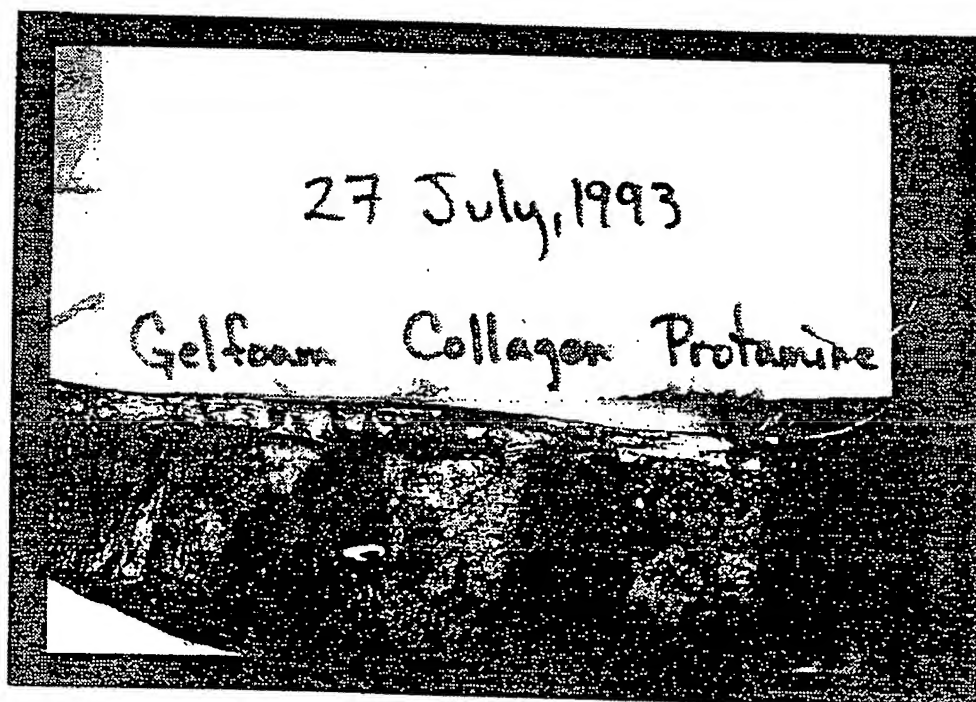 27 July, 1993
Gelfoam Collagen Protamine